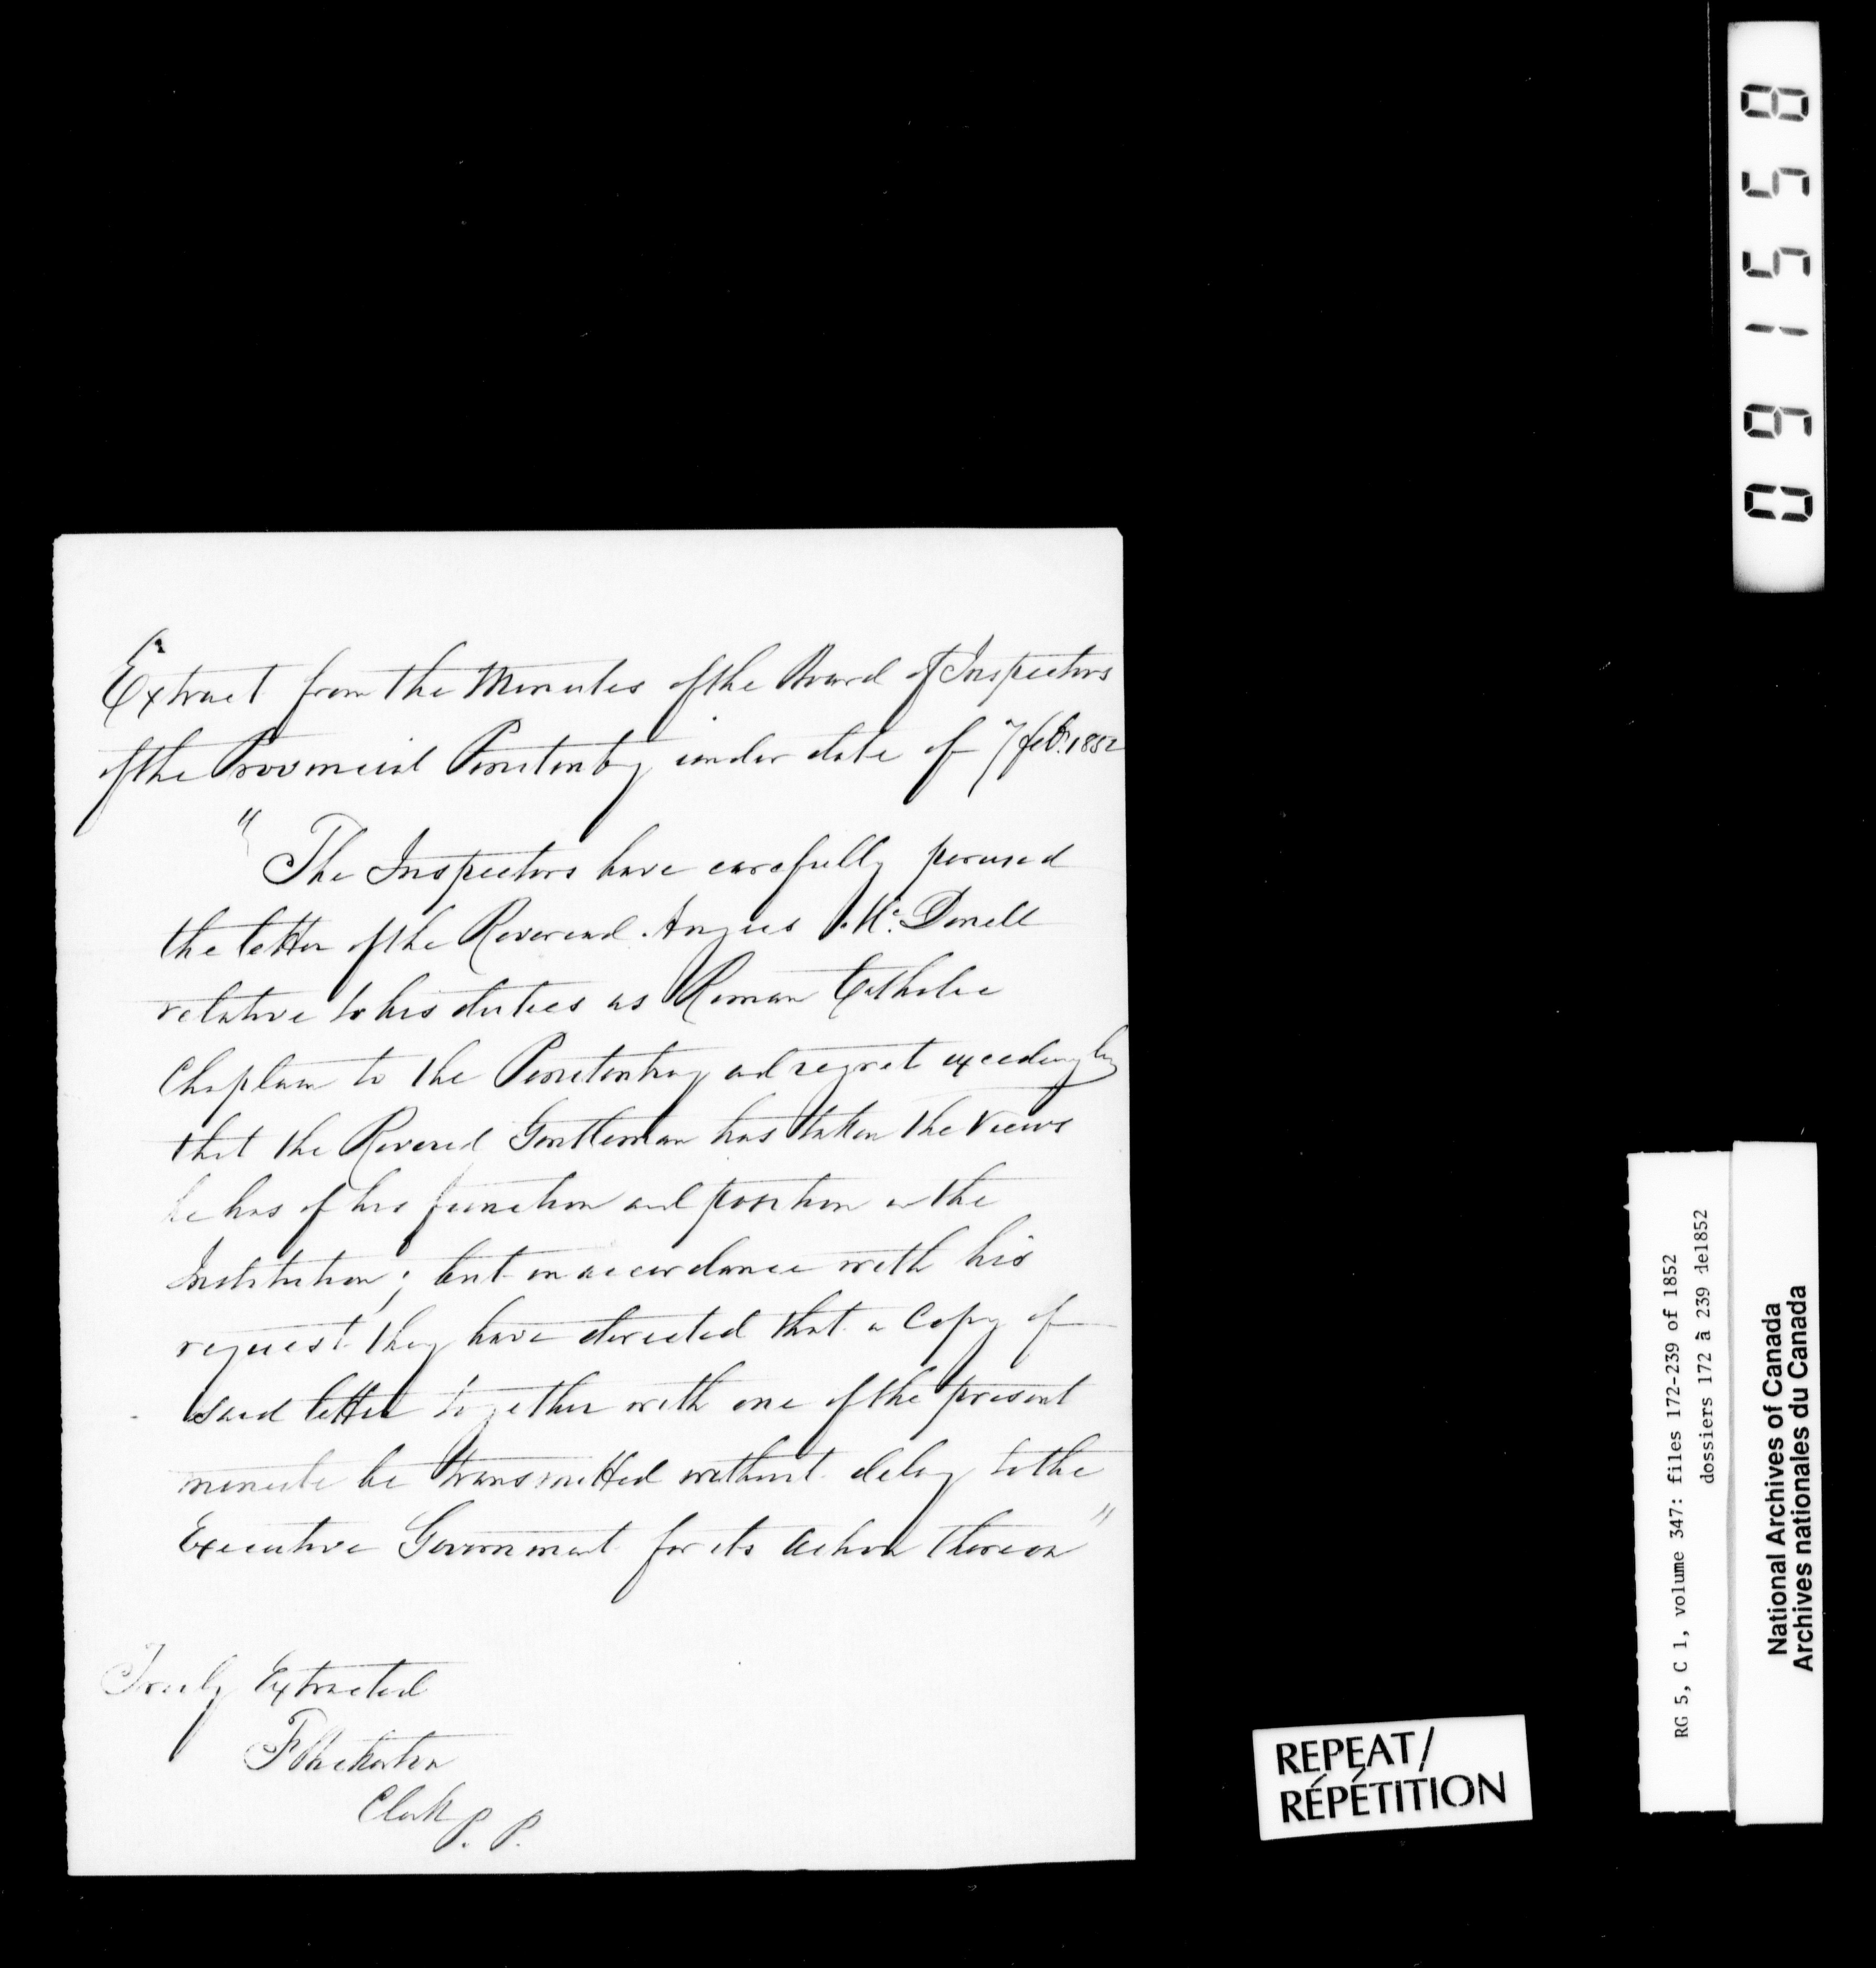 Extract from the Minutes of the Board of Inspectors
of the Provincial Penitentiary under date of 7 feb. 1852
"The Inspectors have carefully perused
the letter of the Reverend Angus McDonell
relative to his duties as Roman Catholic
Chaplain to the Penitentiary and regret exceedingly
that the Revered Gentleman has taken the views
he has of his function and position in the
Institution; but in accordance with his
request they have directed that a Copy of
said letter together with one of the present
minute be transmitted without delay to the
Executive Government for its action thereon"
Truly Extracted
Clerk P. P.
091558
RG 5, C 1, volume 347: files 172-239 of 1852
dossiers 172 à 239 de1852
National Archives of Canada
Archives nationales du Canada
REPEAT/
RÉPÉTITION